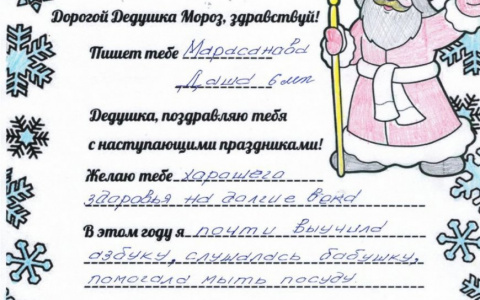 Дорогой Дедушка Мороз, здравствуй!
Пишет тебе Марасанова
Даша 6 лет
Дедушка, поздравляю тебя
с наступающими праздниками!
Желаю тебе харошега
здоровья на долгие века
В этом году я почти выучила
азбуку, слушалась бабушку,
помогала мыть посуду